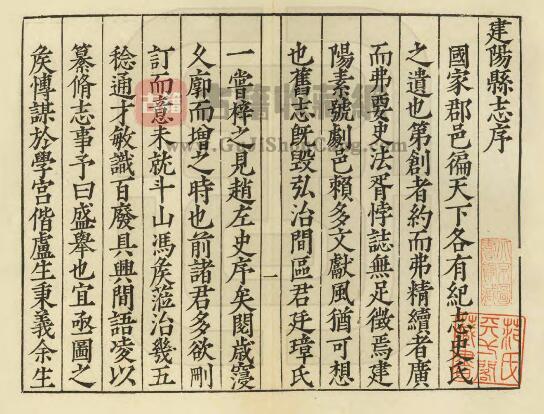 建陽縣志序
國家郡邑徧天下各有紀志史氏
之遺也第創者約而弗精續者廣
而弗要史法胥悖誌無足徵焉建
陽素號劇邑賴多文獻風猶可想
也舊志旣毀弘治間區君廷璋氏
一嘗梓之見趙左史序矣閱歲寖
久廓而增之時也前諸君多欲刪
訂而意未就斗山馮矦蒞治幾五
稔通才敏識百廢具興間語凌以
纂脩志事予曰盛舉也宜亟圖之
矦愽謀於學宮偕盧生秉義余生
一
古籍
古籍收藏網
www.GuJiShouCang.com
范氏
天一閣
藏書